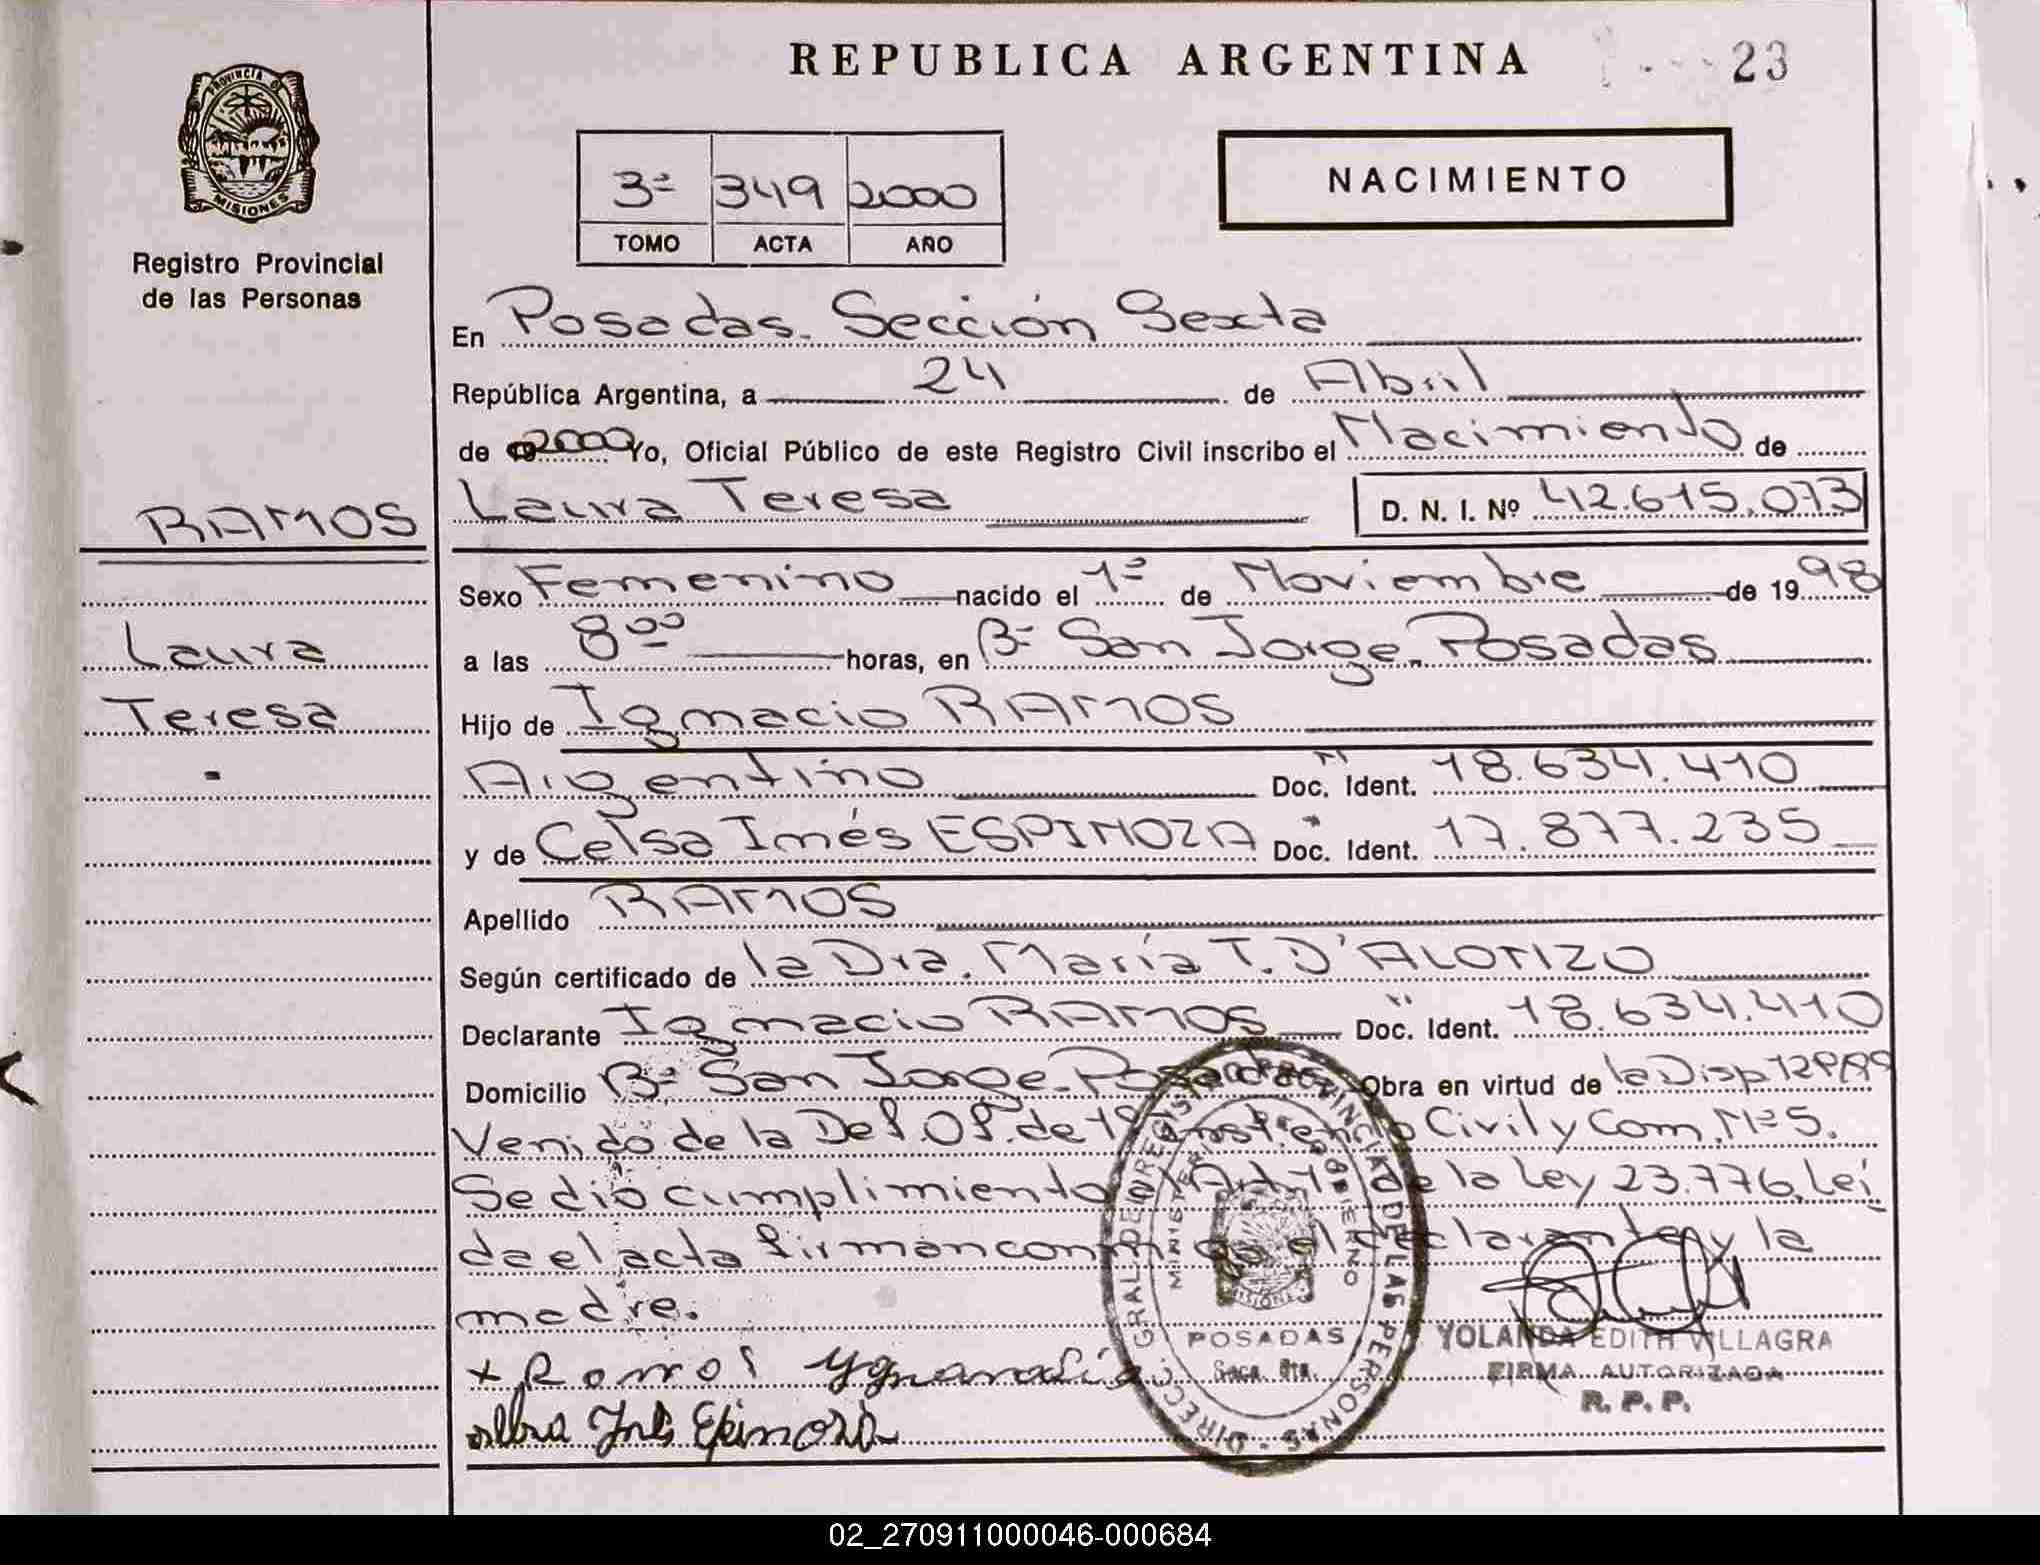 REPUBLICA ARGENTINA
23
PROVINCIA DE
MISIONES
Registro Provincial
de las Personas
3ª 349 2000
TOMO ACTA AÑO
NACIMIENTO
En Posadas. Sección Sexta
República Argentina, a 24 de Abril
de 2000 Yo, Oficial Público de este Registro Civil inscribo el Nacimiento de
RAMOS
Laura Teresa D. N. I. Nº 42.615.073
Sexo Femenino nacido el 1º de Noviembre de 1998
Laura
a las 8⁰⁰ horas, en Bº San Jorge. Posadas
Teresa
Hijo de Ignacio RAMOS
Argentino Doc. Ident. 18.634.410
y de Celsa Inés ESPINOZA Doc. Ident. 17.877.235
Apellido RAMOS
Según certificado de la Dra. María T. D'ALONZO
Declarante Ignacio RAMOS Doc. Ident. 18.634.410
Domicilio Bº San Jorge. Posadas Obra en virtud de la Disp
Venido de la Def. Of. de 1ª Civil y Com. Nº 5.
Se dió cumplimiento Art. 1º de la Ley 23.776, Leí
da el acta firman conmigo el declarante y la
madre.
DIRECC. GRAL. DE REGISTRO PROVINCIAL DE LAS PERSONAS
MINISTERIO DE GOBIERNO
MISIONES
POSADAS
Secc. 6ta.
YOLANDA EDITH VILLAGRA
FIRMA AUTORIZADA
R. P. P.
x Ramos
Inés Epinoza
02_270911000046-000684